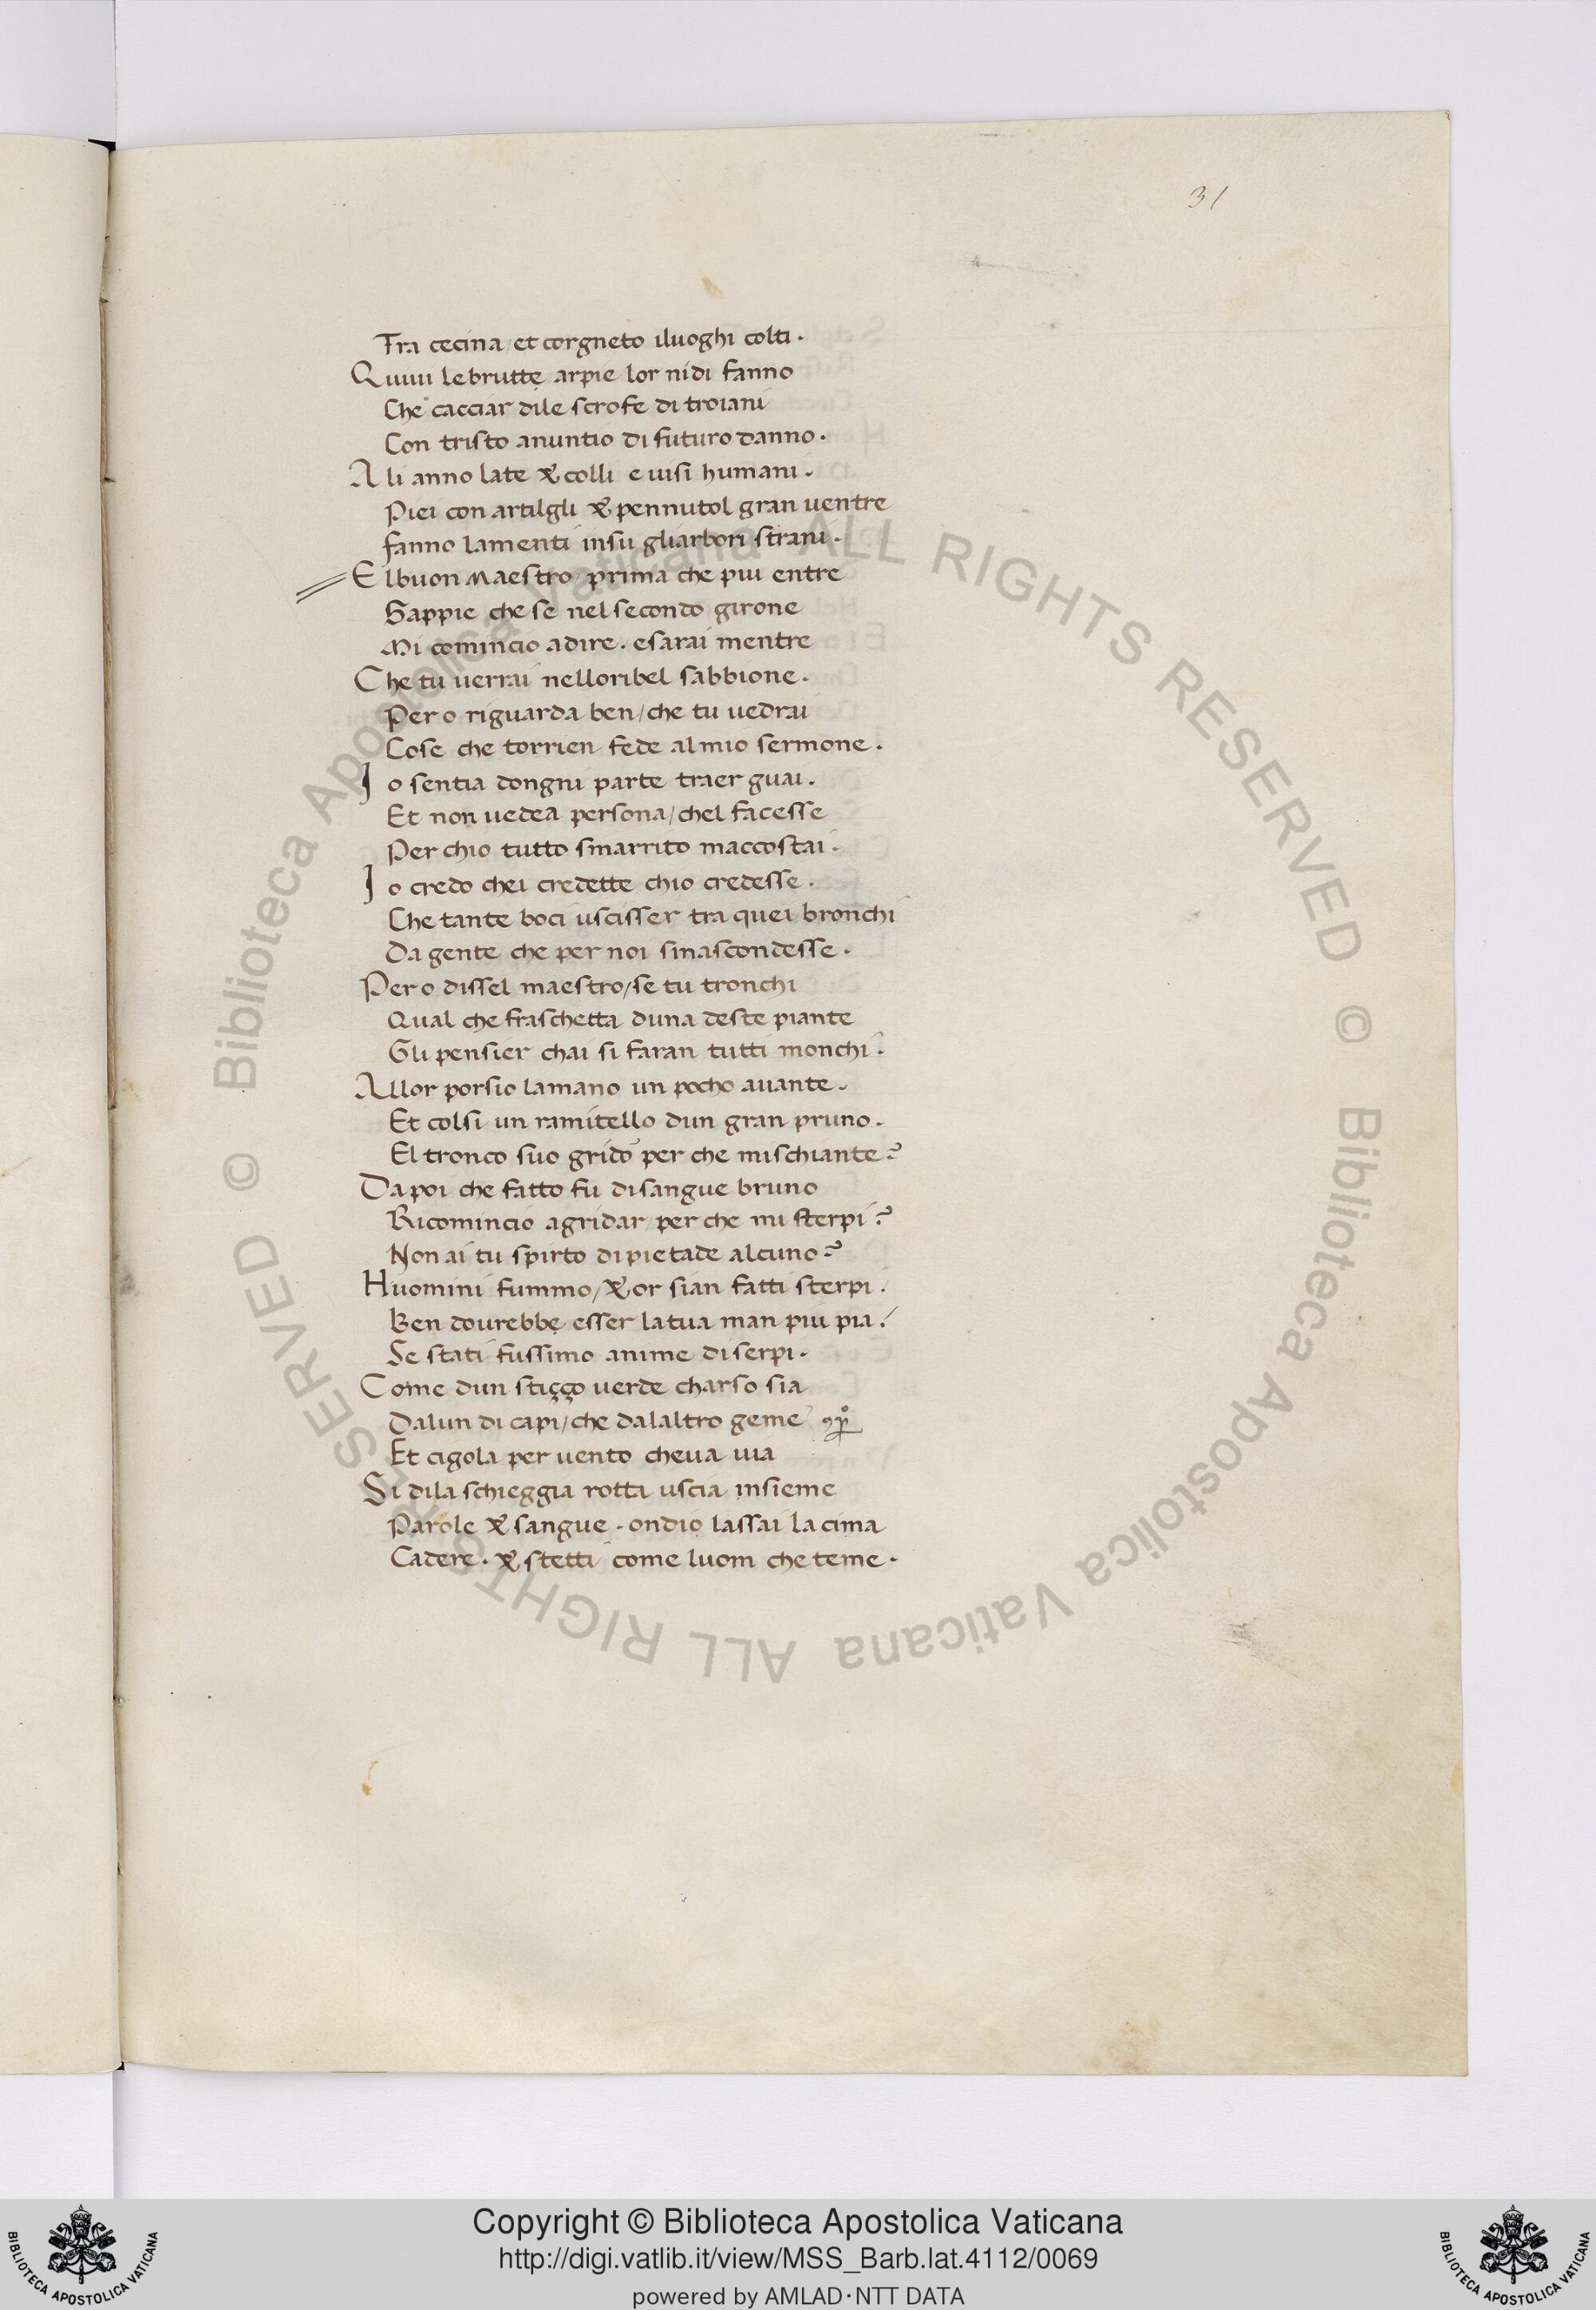 31
Tra cecina / et corgneto iluoghi colti .
Quiui lebrutte arpie lor nidi fanno
Che cacciar dile scrofe di troiani
Con tristo anuntio di futuro danno .
Ali anno late & colli e uisi humani .
Piei con artilgli & pennutol gran uentre
fanno lamenti insu gliarbori strani .
Elbuon Maestro / prima che piu entre
Sappie che se nel secondo girone
Mi comincio adire . esarai mentre
Che tu uerrai nelloribel sabbione .
Pero riguarda ben / che tu uedrai
Cose che torrien fede al mio sermone .
Io sentia dongni parte traer guai .
Et non uedea persona / chel facesse
Per chio tutto smarrito maccostai .
Io credo chei credette chio credesse .
Che tante boci uscisser tra quei bronchi
Da gente che per noi sinascondesse .
Pero dissel maestro / se tu tronchi
Qual che fraschetta duna deste piante
Gli pensier chai si faran tutti monchi .
Allor porsio lamano un pocho auante .
Et colsi un ramitello dun gran pruno .
El tronco suo grido per che mischiante ?
Da poi che fatto fu di sangue bruno
Ricomincio agridar / per che mi sterpi ?
Non ai tu spirto di pietade alcuno ?
Huomini fummo / & or sian fatti sterpi .
Ben dourebbe esser la tua man piu pia .
Se stati fussimo anime di serpi .
Come dun stiçço uerde charso sia
Dalun di capi / che dalaltro geme
Et cigola per uento cheua uia
Si dila scheggia rotta uscia insieme
Parole & sangue . ondio lassai la cima
Cadere . & stetti come luom che teme .
© Biblioteca Apostolica Vaticana ALL RIGHTS RESERVED © Biblioteca Apostolica Vaticana ALL RIGHTS RESERVED
BIBLIOTECA APOSTOLICA VATICANA
Copyright © Biblioteca Apostolica Vaticana
http://digi.vatlib.it/view/MSS_Barb.lat.4112/0069
powered by AMLAD·NTT DATA
BIBLIOTECA APOSTOLICA VATICANA